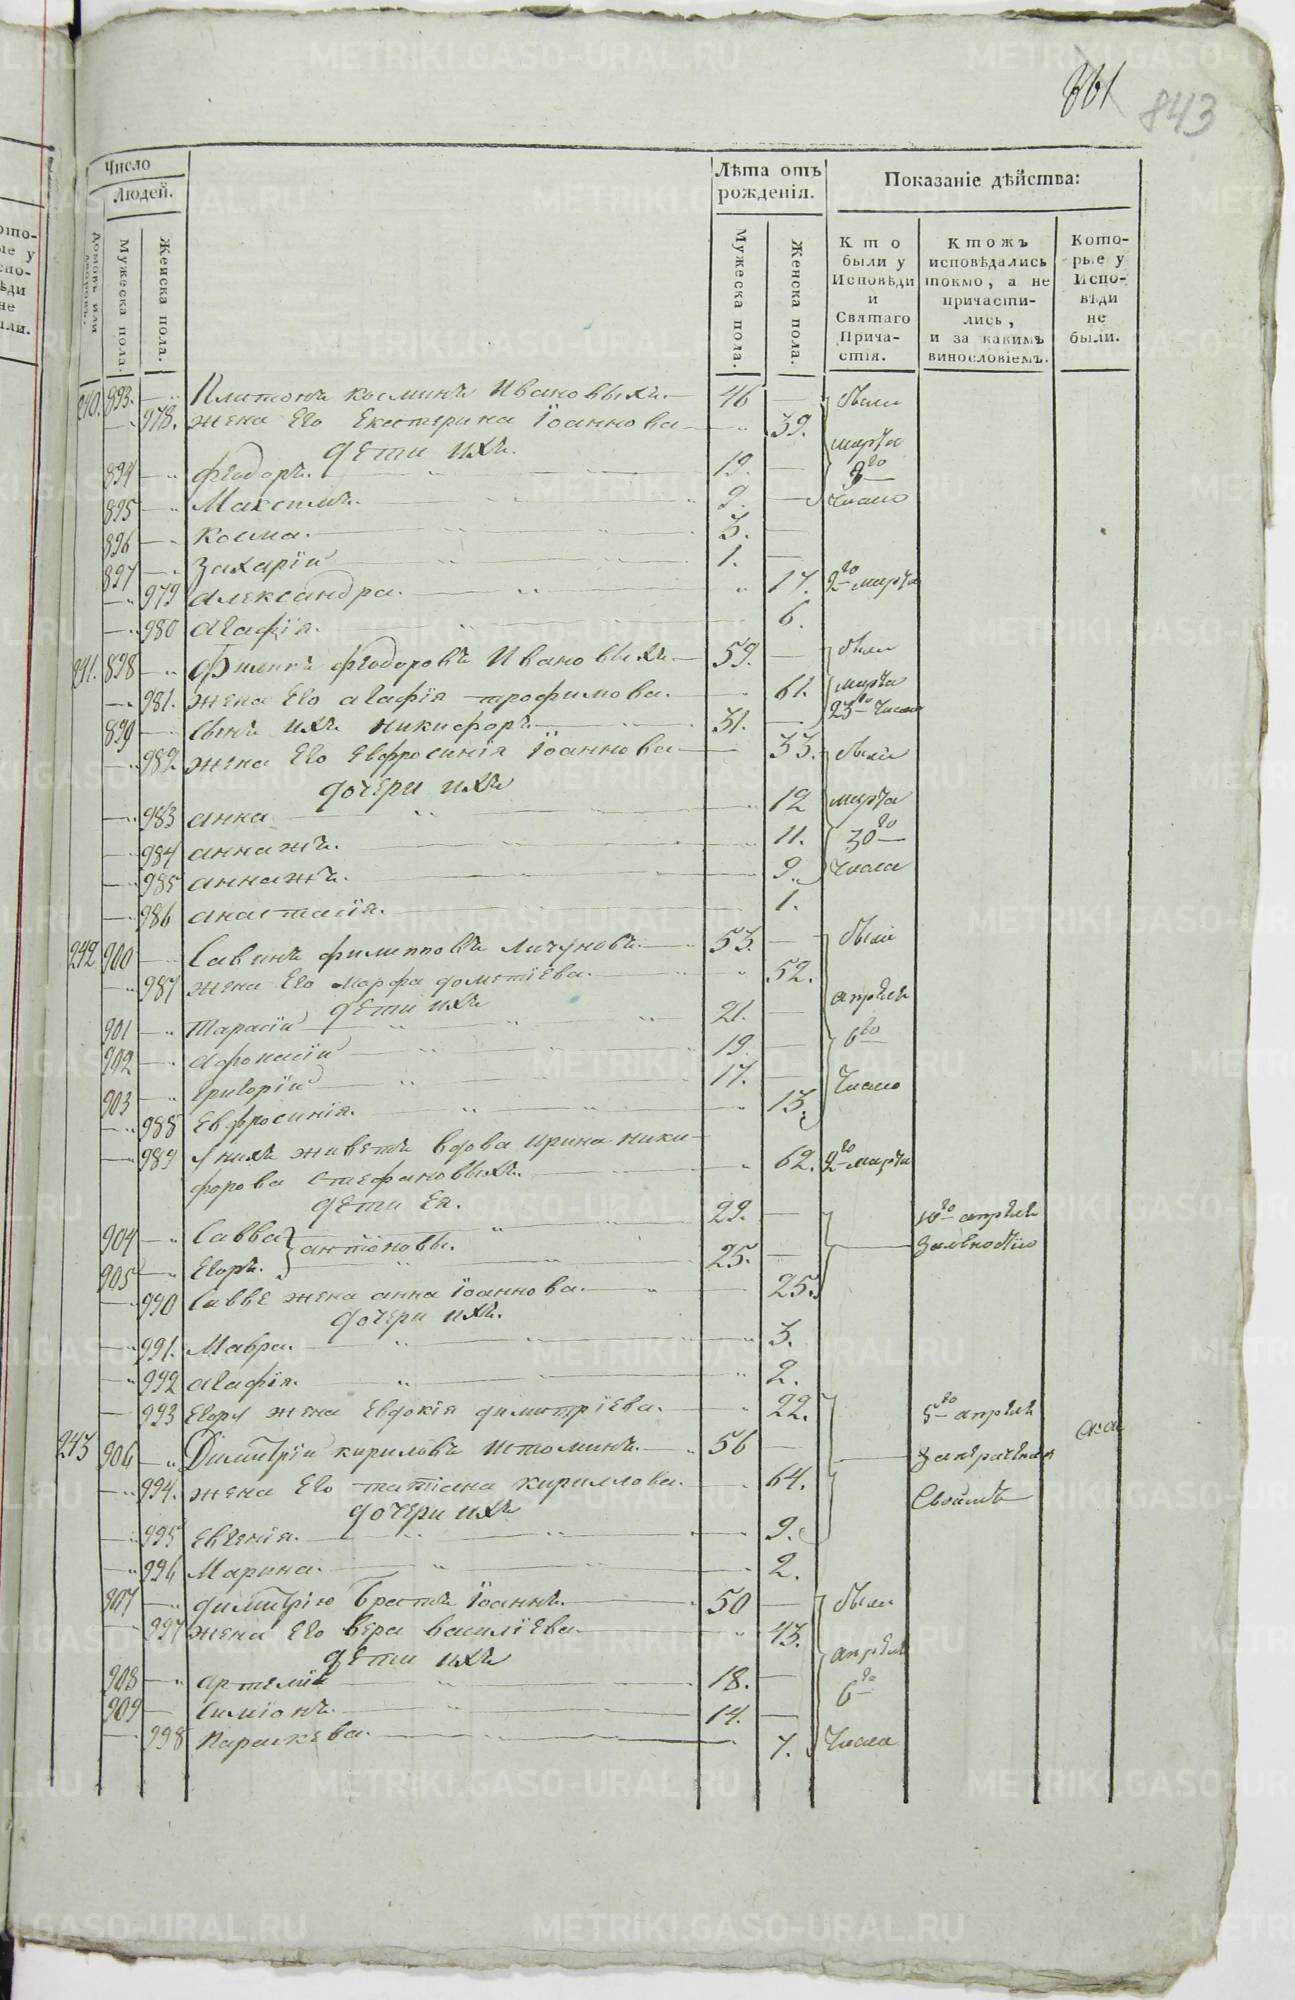 843
Число
Людей.
Лѣта отъ рожденія.
Показаніе дѣйства:
Домовъ или дворовъ.
Мужеска пола.
Женска пола.
Мужеска пола.
Женска пола.
Кто были у Исповѣди и Святаго Прича-стія.
Ктожъ исповѣдались токмо, а не причасти-лись, и за какимъ винословіемъ.
Кото-рые у Испо-вѣди не были.
240. 893. Платонъ косминъ Ивановыхъ. 46 были
978. жена Его Екатерина Іоаннова 39.
дѣти ихъ. марта
894 Феодоръ. 19. 9го
895 Максимъ. 9. число
896 Косма. 3.
897 Захарій 1.
979 Александра. 17. 2го марта
980 Агафія. 6.
241. 898 Филипъ Феодоровъ Ивановыхъ 59. были
981. жена Его Агафія трофимова. 61. марта
899 сынъ ихъ Никифоръ 31. 23го числа
982. жена Его Евфросинія Іоаннова 33. были
дочери ихъ
983 анна 12 марта
984 аннажъ. 11. 30го
985 аннажъ. 9. числа
986 анастасія. 1.
242 900 Савинъ филипповъ 53. были
987 жена Его марфа дометіева. 52.
дѣти ихъ апрѣля
901 Тарасій 21. 6го
902 Афонасій 19.
903 Григорій 17. число
988 Евфросинія. 13.
989 У нихъ живетъ вдова Ирина Ники-
форова Стефановыхъ. 62. 2го марта
дѣти Ея.
904 Савва 29. 10го апрѣля
антоновы.
905 Егоръ. 25.
990 Саввѣ жена анна Іоаннова. 25.
дочери ихъ.
991. Мавра. 3.
992 Агафія. 2.
993 Егору жена Евдокія димитріева. 22. 5го апрѣля
243 906 Димитрій кириловъ Истоминъ. 56
994. жена Его татіана кириллова. 64. своимъ
дочери ихъ
995 Евгенія. 9.
996 Марина. 2.
907 димитрію братъ Іоаннъ. 50 были
997 жена Его вера василіева 43.
дѣти ихъ апрѣля
908 артемій 18. 6го
909 Симіонъ. 14.
998 Параскева. 7. числа
METRIKI.GASO-URAL.RU